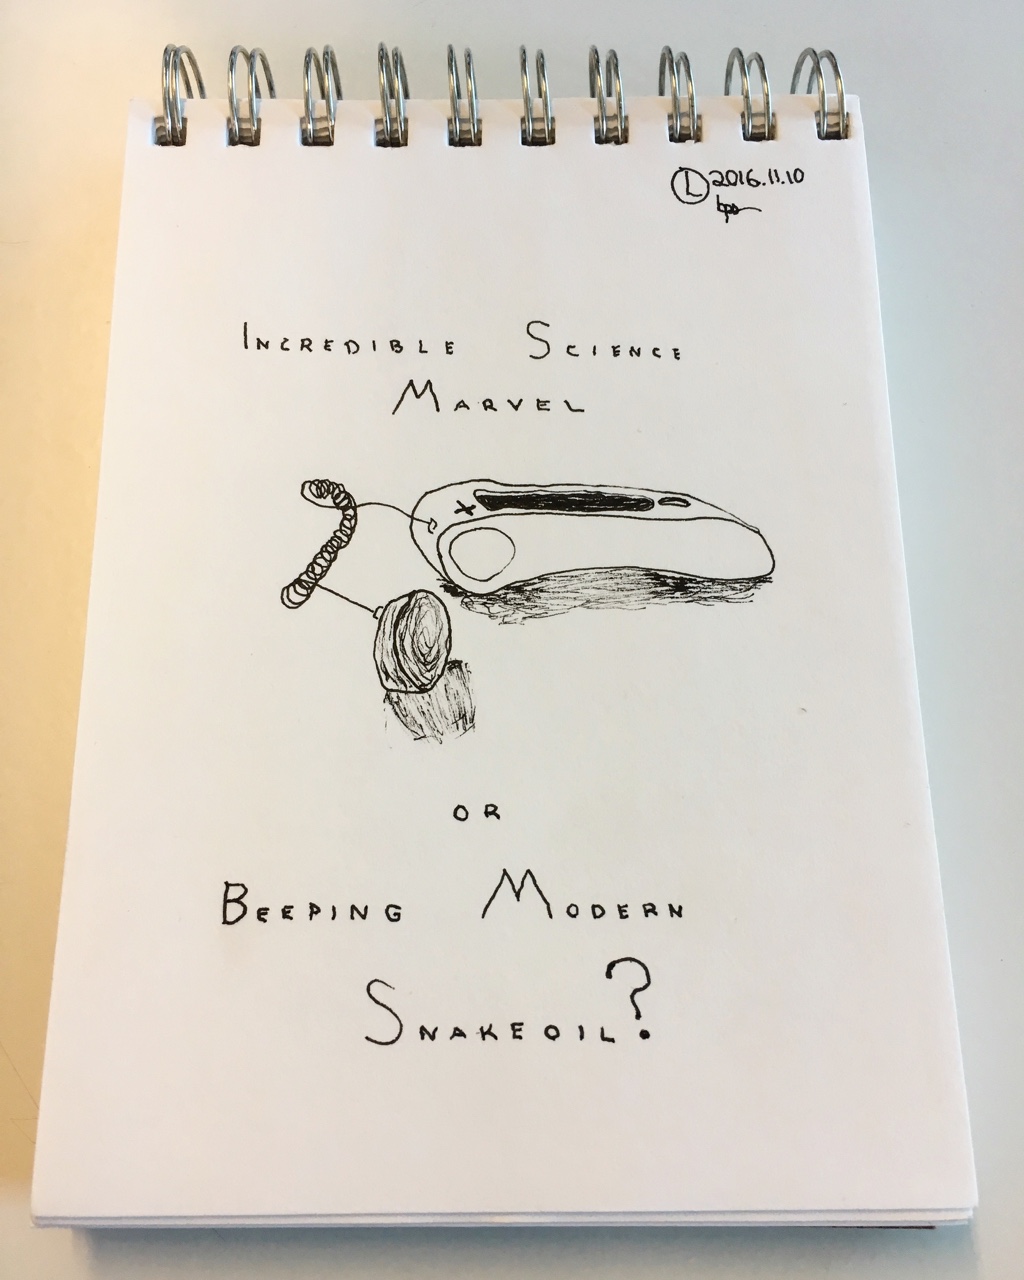 Ⓛ 2016.11.10
INCREDIBLE SCIENCE
MARVEL
OR
BEEPING MODERN
SNAKEOIL?